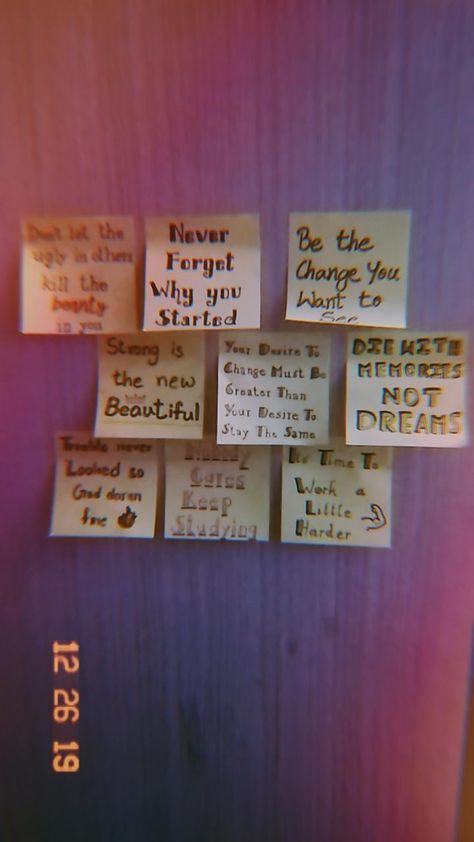 Don't let the
ugly in others
kill the
beauty
in you
Never
Forget
Why you
Started
Be the
Change You
Want to
See
Strong is
the new
Beautiful
Your Desire To
Change Must Be
Greater Than
Your Desire To
Stay The Same
DIE WITH
MEMORIES
NOT
DREAMS
Trouble never
Looked so
God damn
fine
Nobody
Cares
Keep
Studying
It's Time To
Work a
Little
Harder
12 26 19